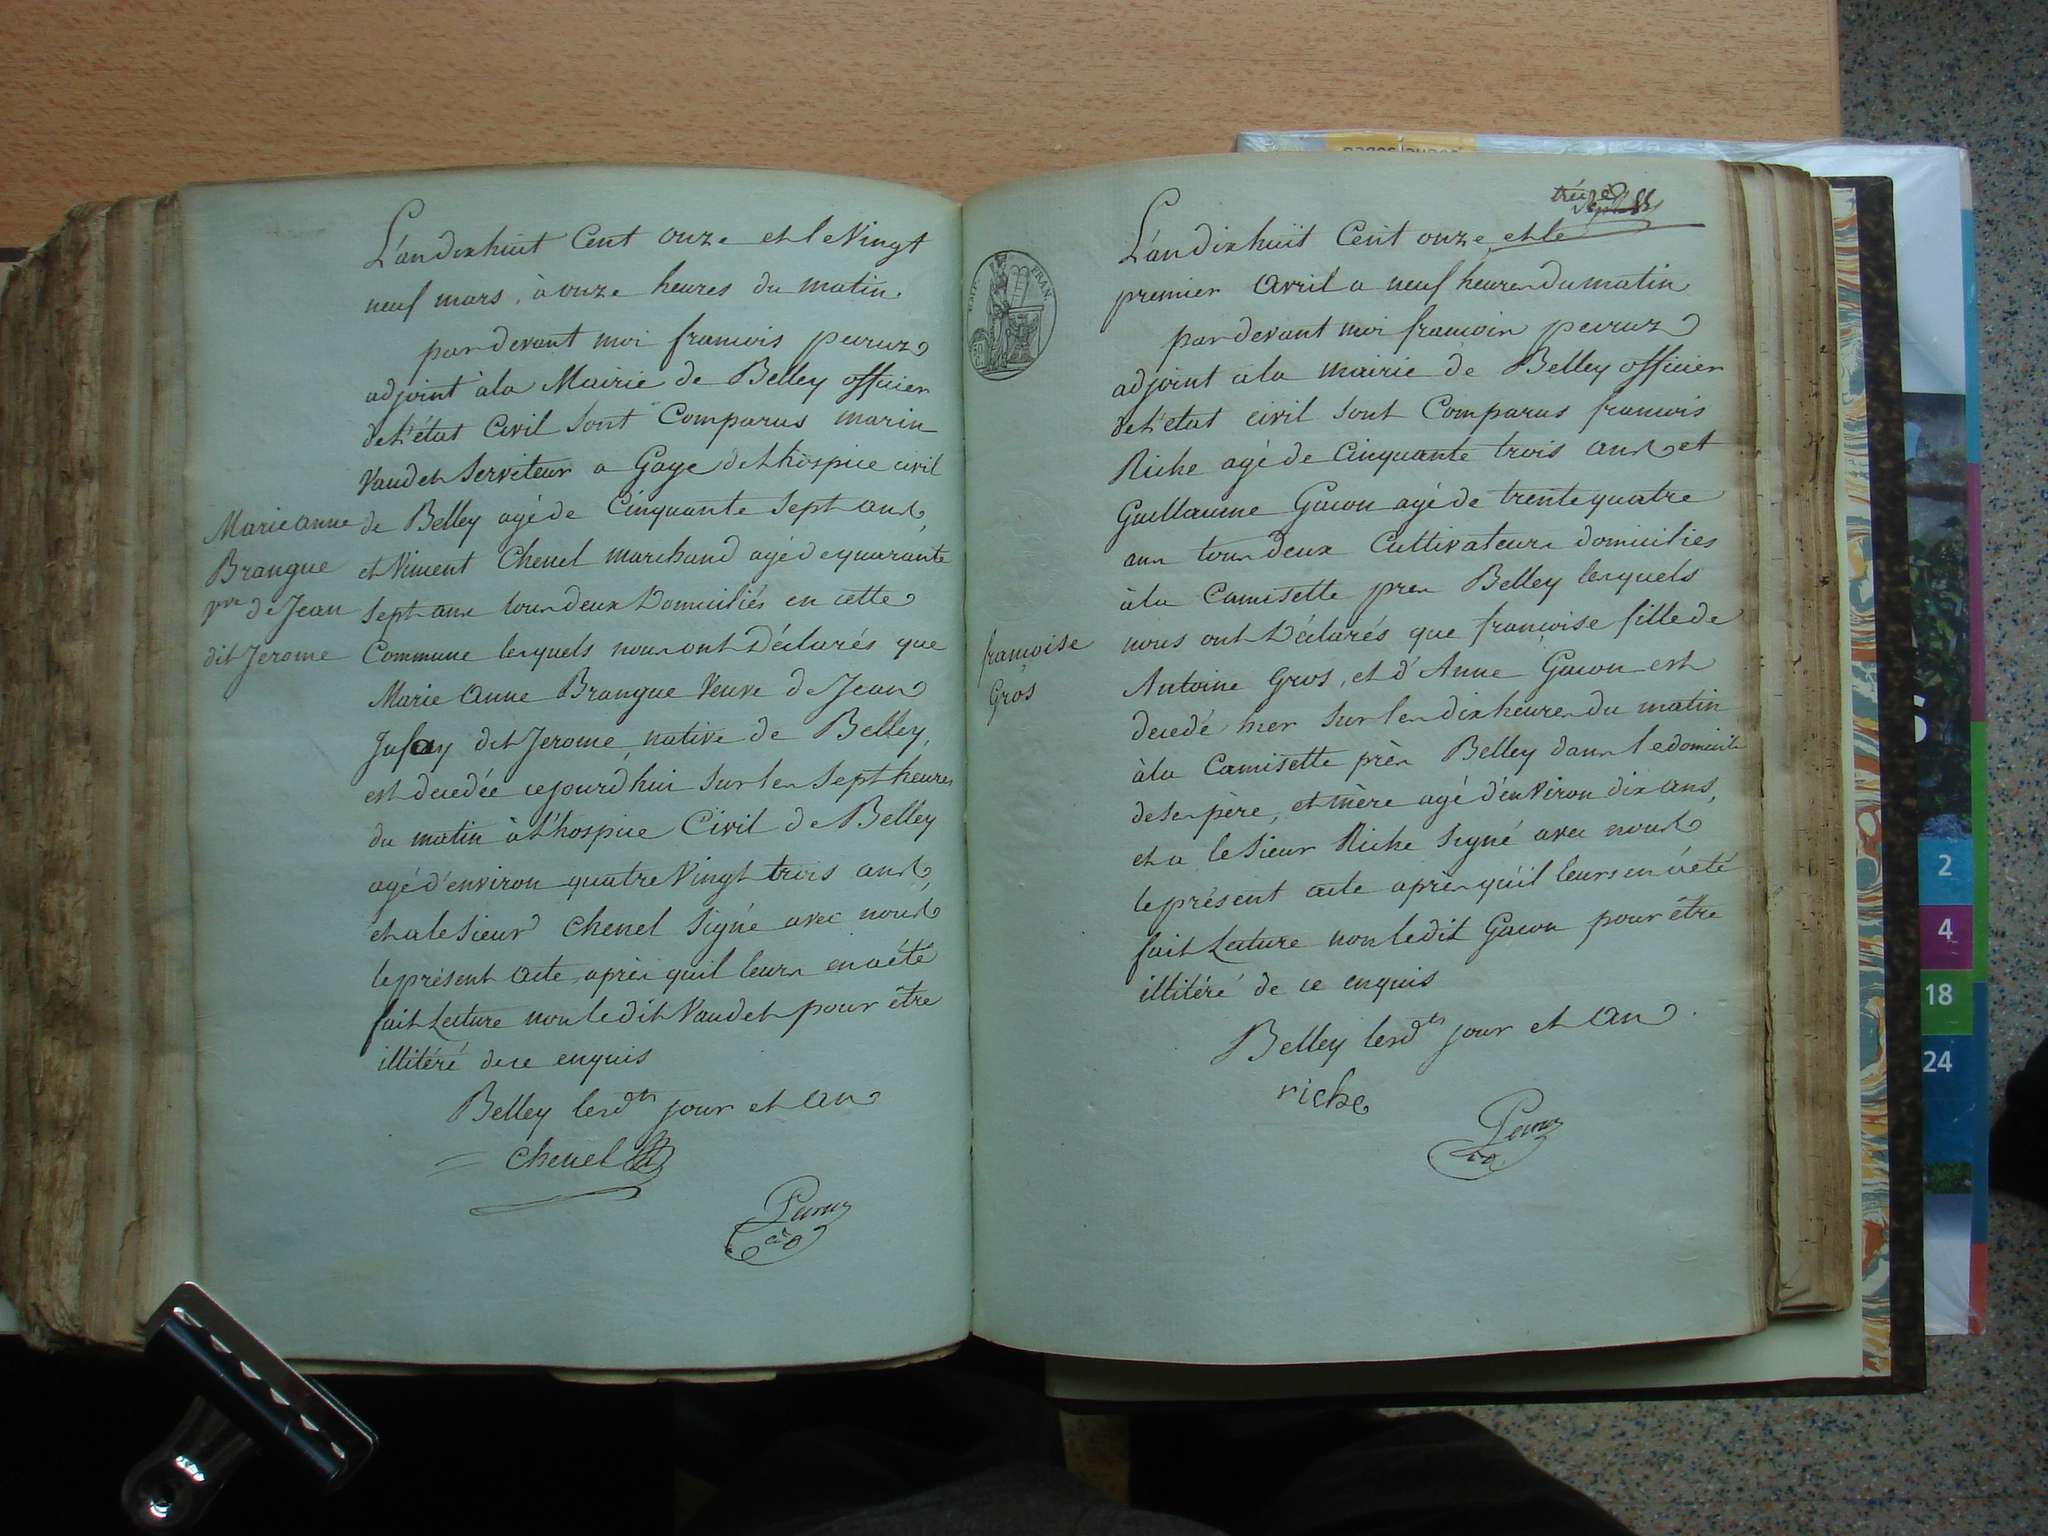 L'an dix huit Cent onze et le Vingt
neuf mars, à onze heures du matin.
par devant moi francois peruz
adjoint à la Mairie de Belley officier
de l'état Civil sont Comparus marin
Vaudet Serviteur a Gage de l'hospice civil
de Belley agé de Cinquante Sept ans,
et Vincent Chenel marchand agé de quarante
Sept ans tous deux Domiciliés en cette
Commune lesquels nous ont Déclarés que
Marie Anne Brangue Veuve de Jean
Jufay dit Jerome, native de Belley,
est decedée cejourd'hui sur les Sept heures
du matin à l'hospice Civil de Belley
agé d'environ quatre Vingt trois ans,
et a le Sieur Chenel Signé avec nous
le présent acte, après quil leurs en a été
fait Lecture non le dit Vaudet pour être
illitéré de ce enquis
Belley lesdts jour et an
Chenel
Peruz
ad
Marie anne
Brangue
vve de Jean
dit Jerome
L'an dix huit Cent onze et le
premier Avril a neuf heures du matin
par devant moi francois peruz
adjoint à la mairie de Belley officier
de l'état civil sont Comparus francois
Riche agé de Cinquante trois ans et
Guillaume Gacon agé de trente quatre
ans tous deux Cultivateurs domiciliés
à la Camisette près Belley lesquels
nous ont Déclarés que françoise fille de
Antoine Gros, et d'Anne Gacon est
decedé hier sur les dix heures du matin
à la Camisette près Belley dans le domicile
de ses père, et mère agé d'environ dix ans,
et a le Sieur Riche Signé avec nous
le présent acte après qu'il leurs en a été
fait Lecture non le dit Gacon pour être
illitéré de ce enquis
Belley lesdts jour et an.
riche
Peruz
ad
françoise
Gros
FRAN
2
4
18
24